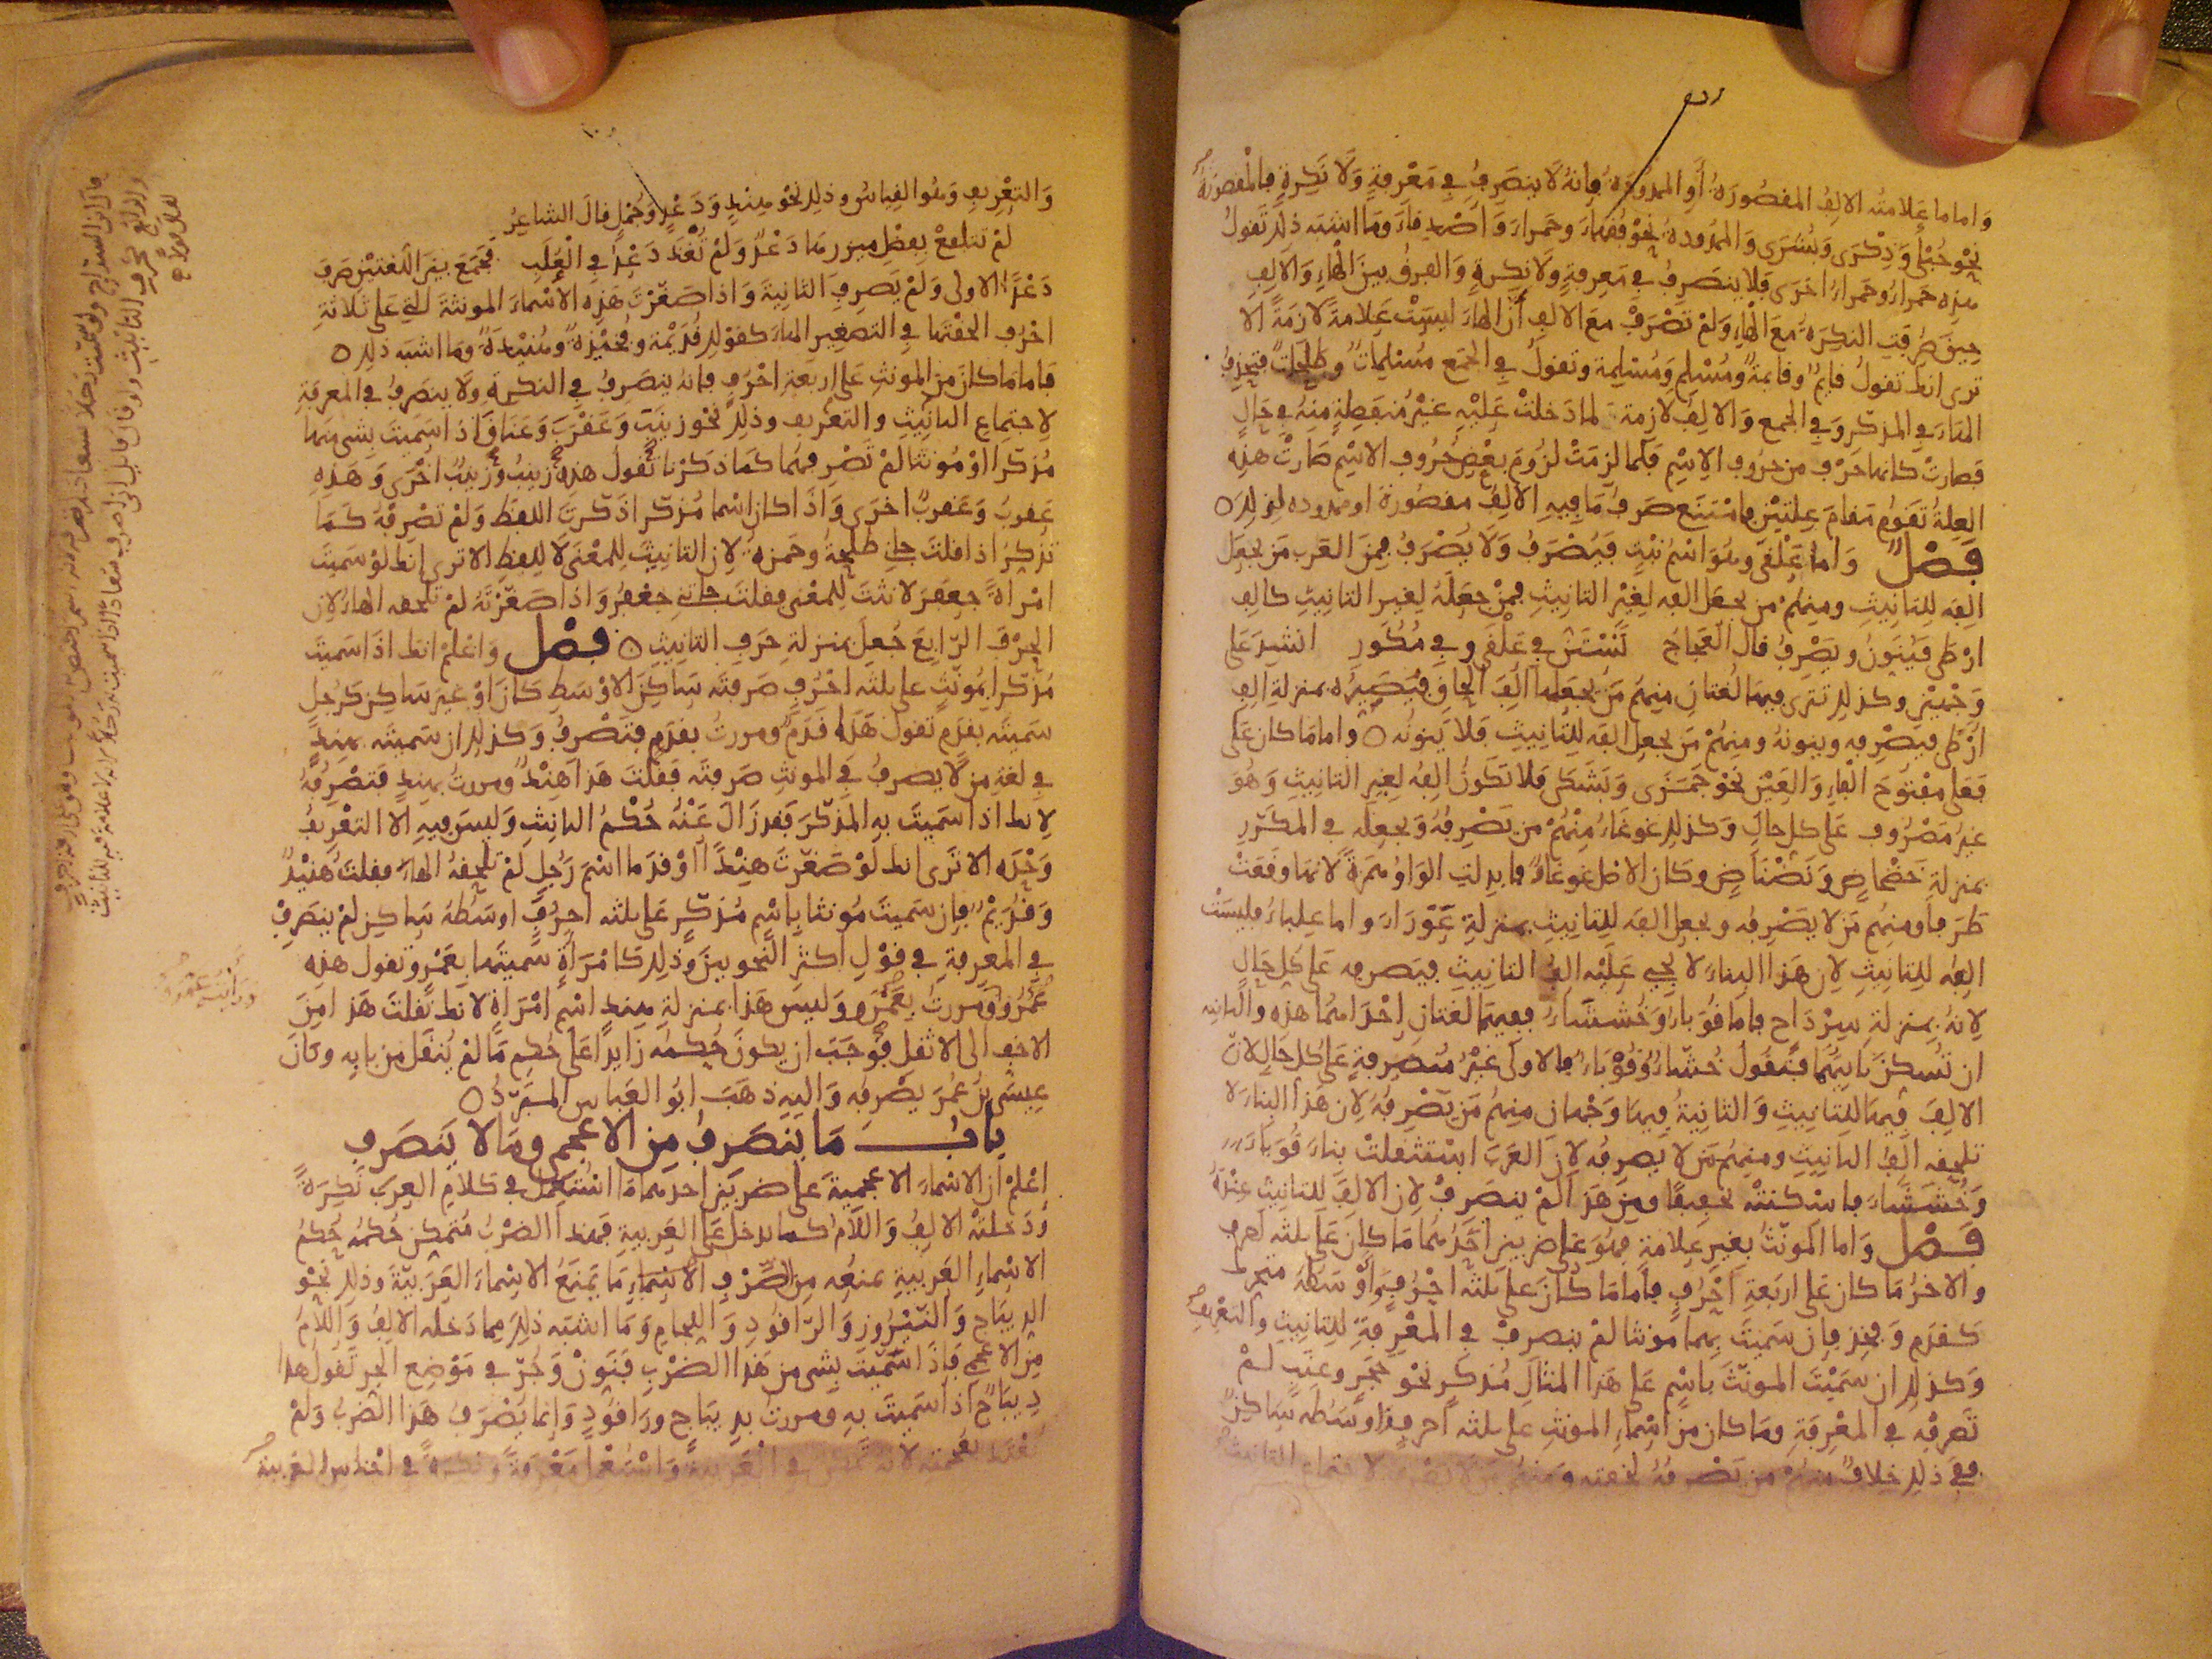 واما ما علامته الالف المقصورة أو الممدودة فإنه لا ينصرف في معرفة ولا نكرة فالمقصورة
نحو حبلى وذكرى وبشرى والممدودة نحو فقهاء وحمراء وأصدقاء وما اشبه ذلك تقول
هذه حمراء وحمراء اخرى فلا ينصرف في معرفة ولا نكرة والفرق بين الهاء والالف
حيث صرفت النكرة مع الهاء ولم تصرف مع الالف أن الهاء ليست علامة لازمة الا
ترى انك تقول قايم وقايمة ومسلم ومسلمة وتقول في الجمع مسلمات وطلحات فتحذف
التاء في المذكر وفي الجمع والالف لازمة لما دخلت عليه غير منفصلة منه في حال
فصارت كانها حرف من حروف الاسم فلما لزمت لزوم بعض حروف الاسم صارت هذه
العلة تقوم مقام علتين فامتنع صرف ما فيه الالف مقصورة او ممدودة لذلك ٥
فصل واما علقى وهو اسم نبت فيصرف ولا يصرف فمن العرب من يجعل
الفه للتانيث ومنهم من يجعل الفه لغير التانيث فمن جعله لغير التانيث كالف
ارطى فينون ويصرف قال العجاج يستن في علقى وفي مكور انشد على
وجهين وكذلك تترى فيها لغتان منهم من يجعلها الف الحاق فيصيره بمنزلة الف
ارطى فيصرفه وينونه ومنهم من يجعل الفه للتانيث فلا ينونه ٥ واما ما كان على
فعلى مفتوح الفاء والعين نحو جمزى وبشكى فلا تكون الفه لغير التانيث وهو
غير مصروف على كل حال وكذلك غوغاء منهم من يصرفه ويجعله في المكرر
بمنزلة خضخاض ونضناض وكان الاصل غوغاو فابدلت الواو همزة لانها وقعت
طرفا ومنهم من لا يصرفه ويجعل الفه للتانيث بمنزلة عوراء واما علباء فليست
الفه للتانيث لان هذا البناء لا يجي عليه الف التانيث فيصرفه على كل حال
لانه بمنزلة سرداح فاما قوباء وخششاء ففيهما لغتان احداهما هذه والثانيه
ان تسكن ثانيهما فتقول خشاء وقوباء فالاولى غير منصرفة على كل حال لان
الالف فيها للتانيث والثانية فيها وجهان منهم من يصرفه لان هذا البناء لا
تلحقه الف التانيث ومنهم من لا يصرفه لان العرب استثقلت بناء قوباء
وخششاء فاسكنته تخفيفا ومن هذا لم ينصرف لان الالف للتانيث عنده
فصل واما المونث بغير علامة فهو على ضربين احدهما ما كان على ثلثه احرف
والاخر ما كان على اربعة احرف فاما ما كان على ثلثه احرف وأوسطه متحرك
كقدم وفخذ فإن سميت بهما مونثا لم ينصرف في المعرفة للتانيث والتعريف
وكذلك ان سميت المونث باسم على هذا المثال مذكر نحو حجر وعنب لم
تصرفه في المعرفة وما كان من اسماء المونث على ثلثه احرف واوسطه ساكن
ففي ذلك خلاف منهم من يصرفه لخفته ومنهم من لا يصرفه لاجتماع التانيث
والتعريف وهو القياس وذلك نحو هند ودعد وجمل قال الشاعر
لم تتلفع بفضل ميزرها دعد ولم تغذ دعد في العلب فجمع بين اللغتين صرف
دعدا الاولى ولم يصرف الثانية واذا صغرت هذه الاسماء المونثة التي على ثلاثة
احرف الحقتها في التصغير الهاء كقولك قديمة وفخيذة وهنيدة وما اشبه ذلك ٥
فاما ما كان من المونث على اربعة احرف فإنه ينصرف في النكرة ولا ينصرف في المعرفة
لاجتماع التانيث والتعريف وذلك نحو زينب وعقرب وعناق اذا سميت بشي منها
مذكرا او مونثا لم تصرفها كما ذكرنا تقول هذه زينب وزينب اخرى وهذه
عقرب وعقرب اخرى واذا كان اسما مذكر اذكرت اللفظ ولم تصرفه كما
تذكر اذا قلت جاني طلحة وحمزة لان التانيث للمعنى لا للفظ الا ترى انك لو سميت
امراة جعفر لانثت للمعنى فقلت جاتني جعفر واذا صغرته لم تلحقه الهاء لان
الحرف الرابع جعل بمنزلة حرف التانيث ٥ فصل واعلم انك اذا سميت
مذكرا بمونث على ثلثه احرف صرفته ساكن الاوسط كان او غير ساكن كرجل
سميته بقدم تقول هذه قدم ومررت بقدم فتصرف وكذلك ان سميته بهند
في لغة من لا يصرف في المونث صرفته فقلت هذا هند ومررت بهند فتصرفه
لانك اذا سميت به المذكر فقد زال عنه حكم التانيث وليس فيه الا التعريف
وحده الا ترى انك لو صغرت هندا او قدما اسم رجل لم تلحقه الهاء فقلت هنيد
وقديم فإن سميت مونثا باسم مذكر على ثلثه احرف اوسطه ساكن لم ينصرف
في المعرفة في قول اكثر النحويين وذلك كامراة سميتها بعمرو تقول هذه
عمرو ومررت بعمرو وليس هذا بمنزلة هند اسم امراة لانك نقلت هذا من
الاخف الى الاثقل فوجب ان يكون حكمه زايدا على حكم ما لم ينقل من بابه وكان
عيسى بن عمر يصرفه واليه ذهب ابو العباس المبرد ٥
باب ما ينصرف من الاعجمي وما لا ينصرف
اعلم ان الاسماء الاعجمية على ضربين احدهما ما استعمل في كلام العرب نكرة
ودخلته الالف واللام كما يدخل على العربية فهذا الضرب متمكن حكمه حكم
الاسماء العربية يمنعه من الصرف الاسماء ما يمنع الاسماء العربية وذلك نحو
الديباج والنيروز والراقود واللجام وما اشبه ذلك مما دخله الالف واللام
من الاعجمي فإذا سميت بشي من هذا الضرب فنون وجر في موضع الجر تقول هذا
ديباج اذا سميت به ومررت بديباج وراقود وإنما يصرف هذا الضرب ولم